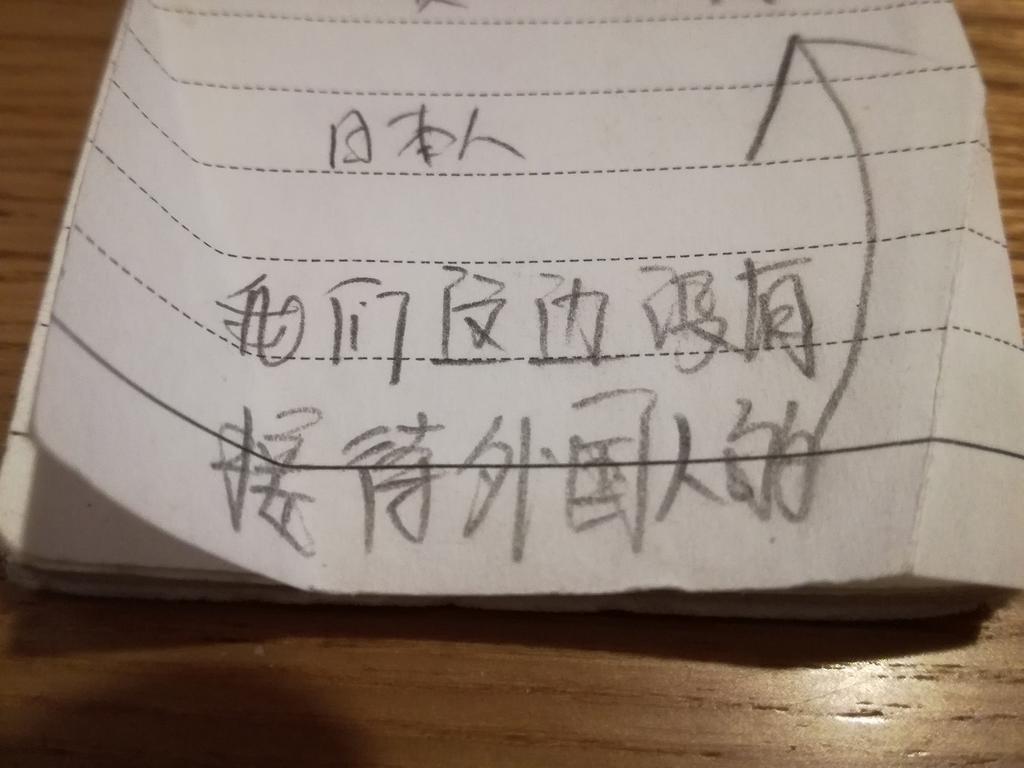 日本人
我们这边没有
接待外国人的